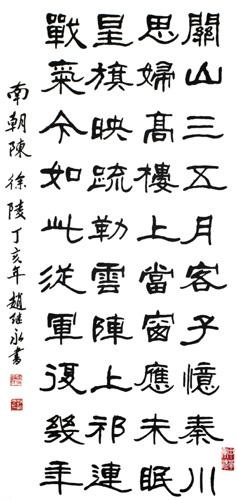 關山三五月客子憶秦川
思婦高樓上當窗應未眠
星旗映疏勒雲陣上祁連
戰氣今如此從軍復幾年
南朝陳 徐陵 丁亥年 趙继永書